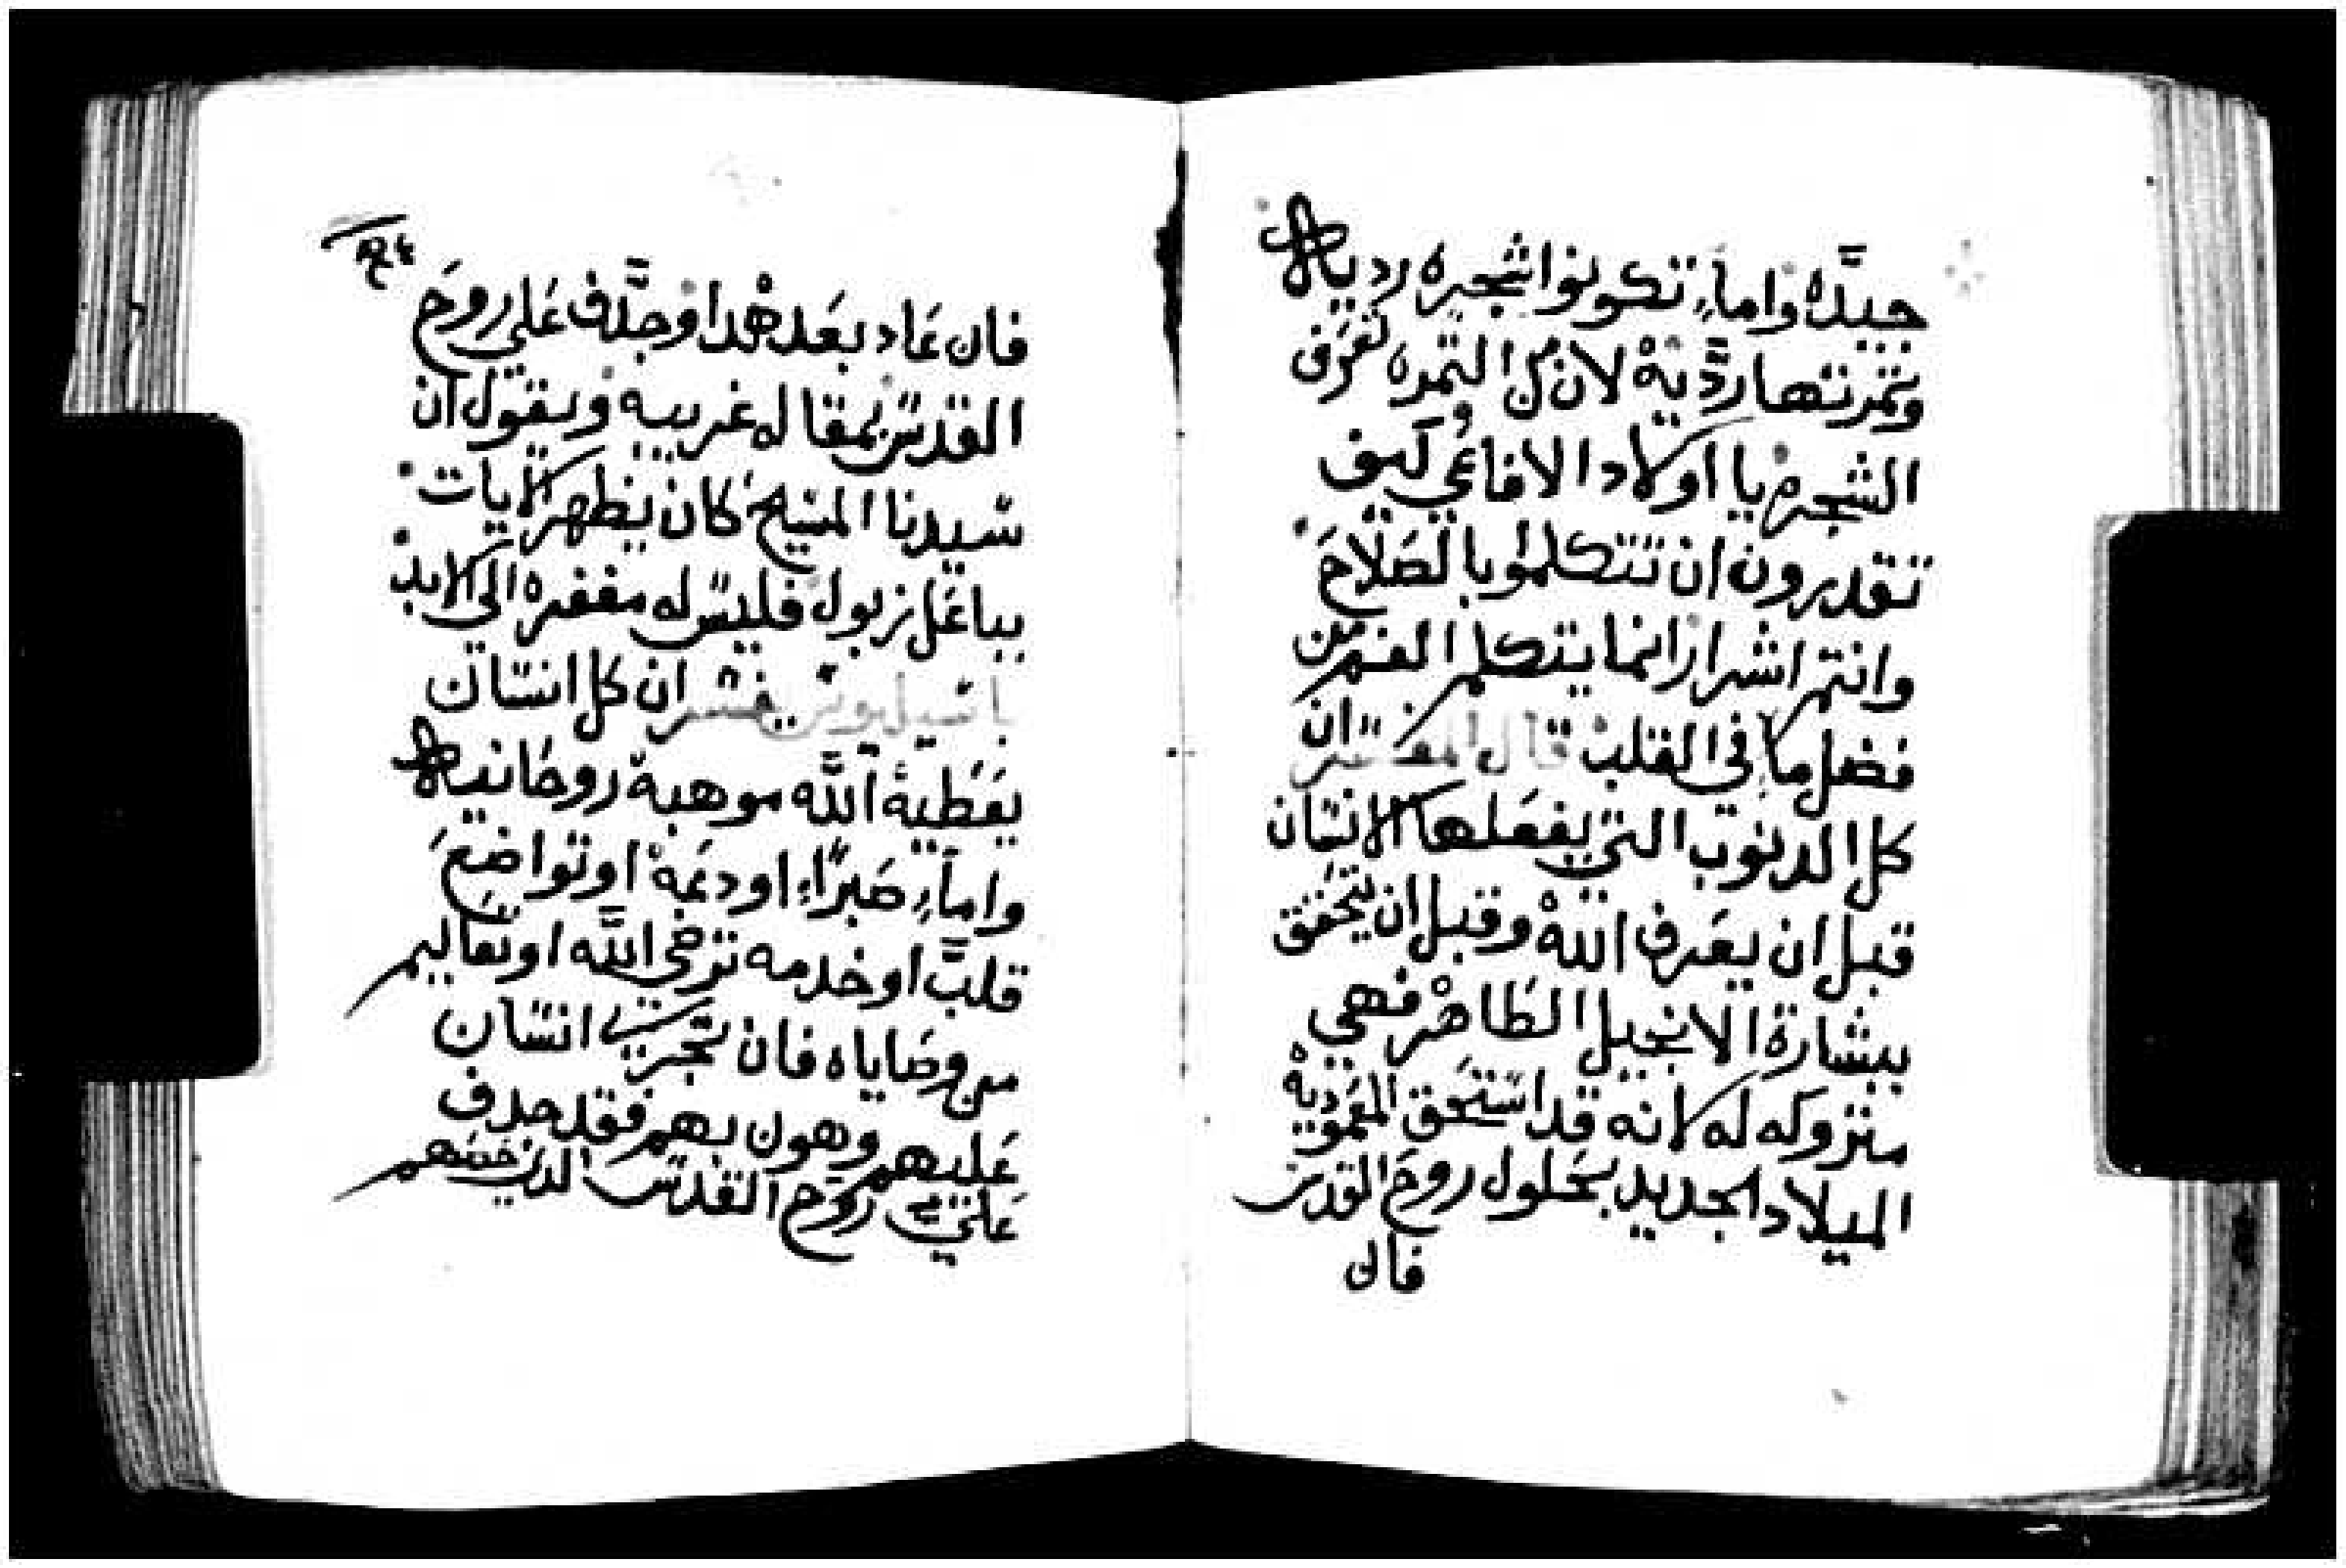 جيدّه واماء تكونوا شجره رديه
وثمرتها رديّه لان من الثمره تعرف
الشجره يا اولاد الافاعي كيف
تقدرون ان تتكلموا بالصلاح
وانتم اشرار انما يتكلم الفم من
فضل ما في القلب قال المفسر ان
كل الدنوب التي يفعلها الانسان
قبل ان يعرف الله وقبل ان يتحقق
ببشارة الانجيل الطاهر فهي
متروكه له لانه قد استحق المعموديه
الميلاد الجديد بحلول روح القدس
فان
فان عاد بعد هدا وجدّف علي روح
القدس بمقاله غريبه ويقول ان
سيدنا المسيح كان يظهر الايات
بباعل زبول فليس له مغفره الي الابد
باسيليوس يفسر ان كل انسان
يعطيه اللّه موهبة روحانيه
واماء صبرًا اودعه او تواضع
قلبّ او خدمه ترضي اللّه او تعاليم
من وصاياه فان تجري انسان
عليهم وهون بهم فقد جدف
علي روح القدس الدي خصهم